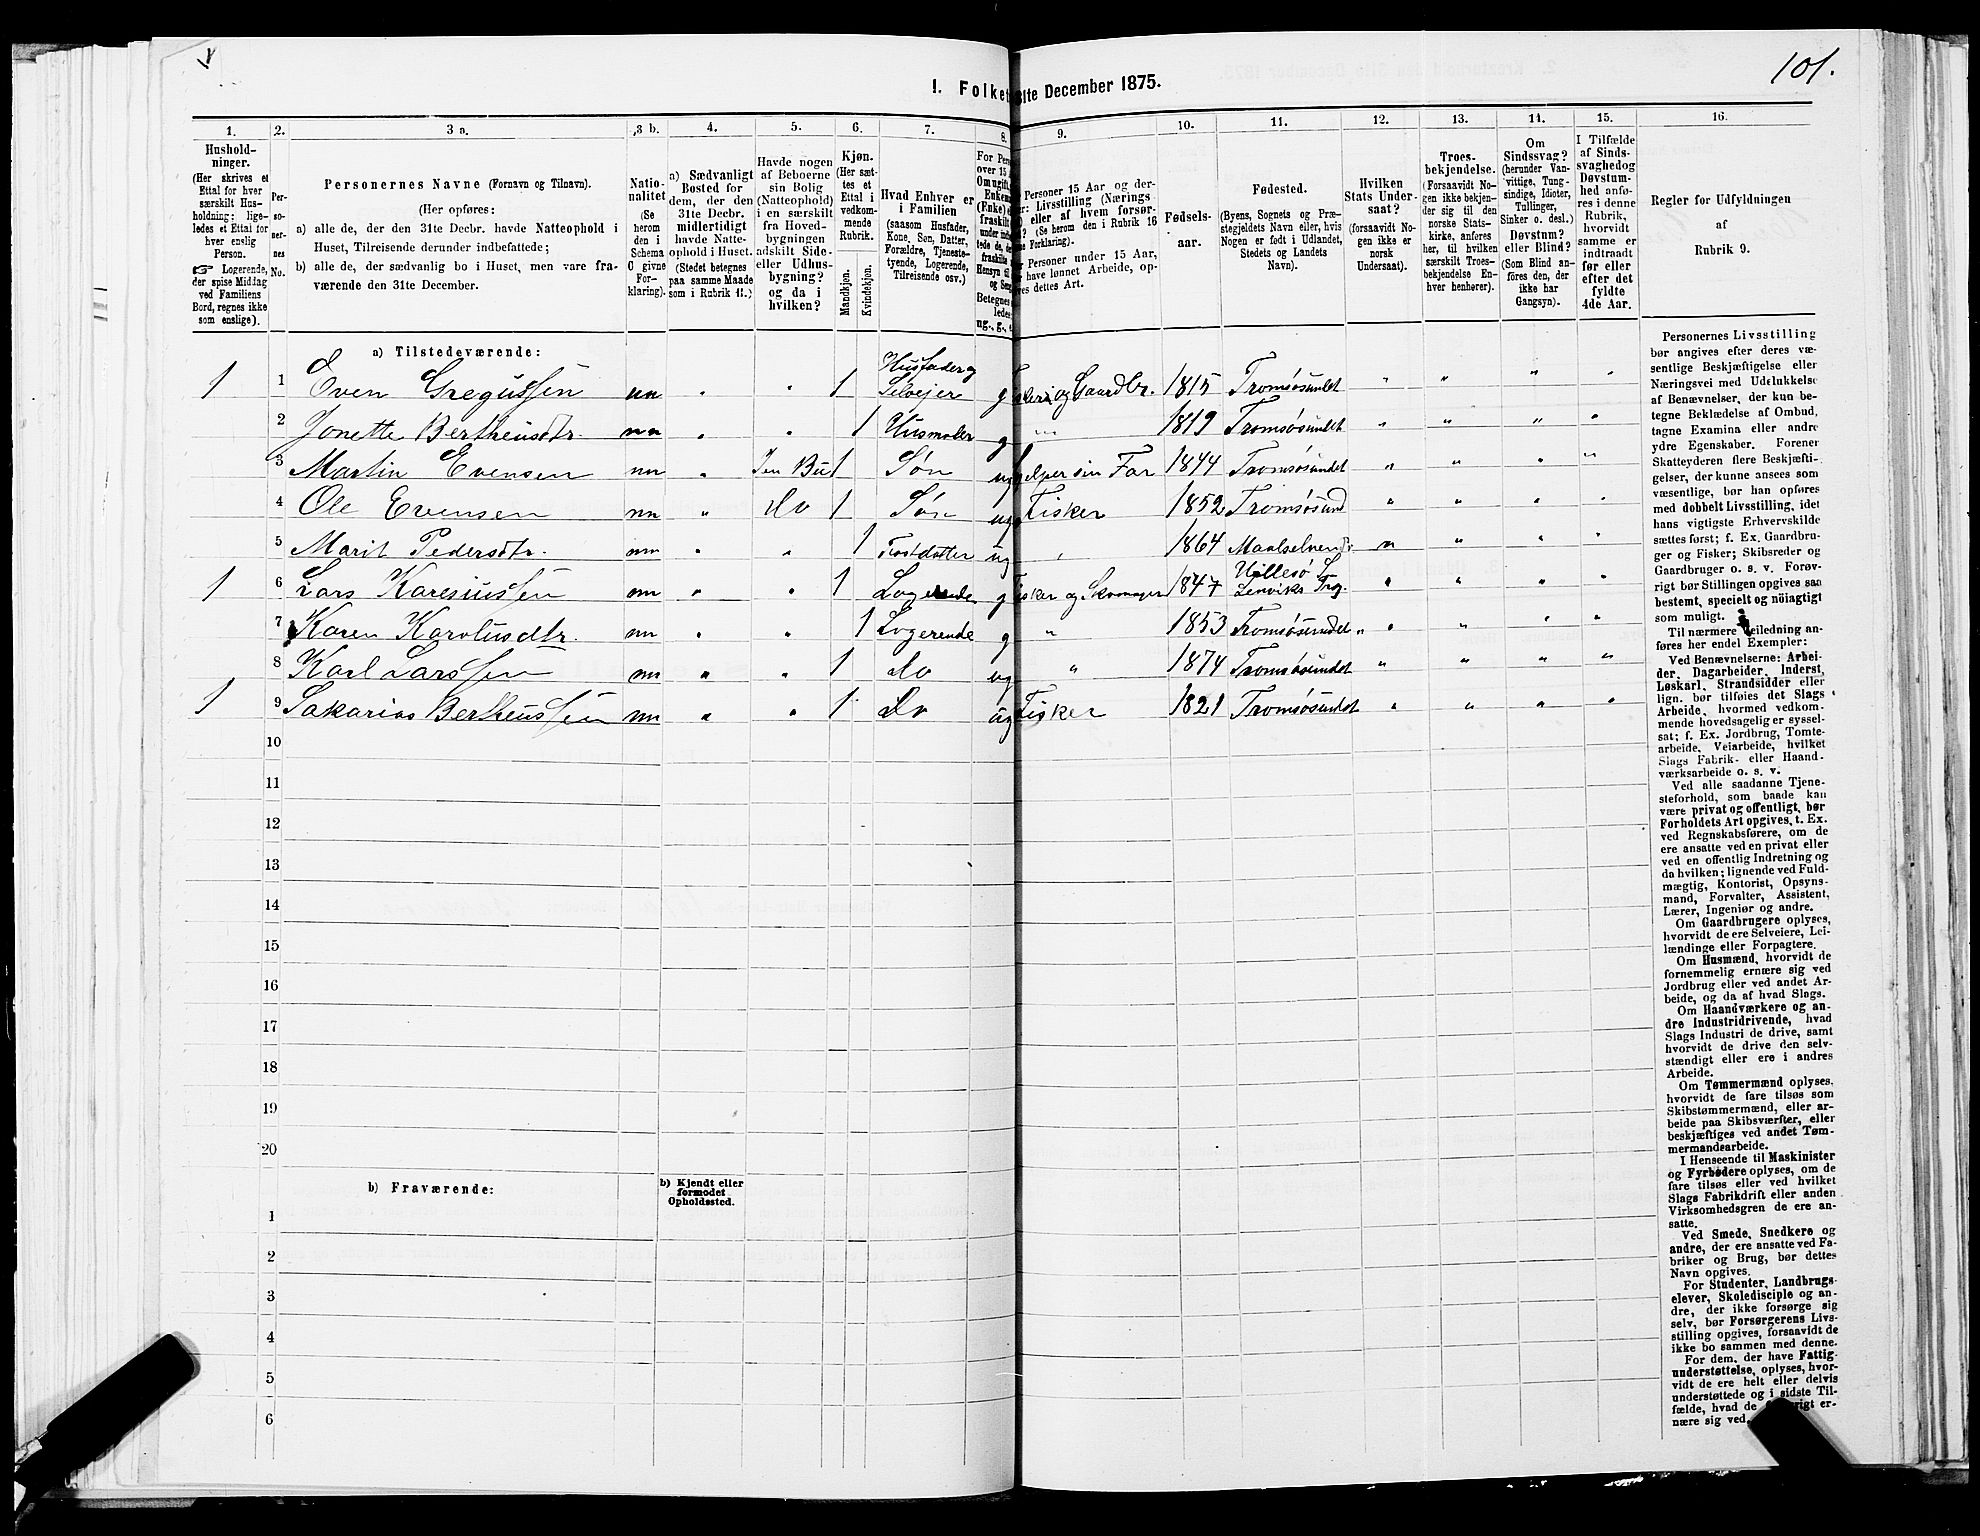 101.
I. Folket
31te December 1875.
1. 2. 3 a. 3 b. 4. 5. 6. 7. 8. 9. 10. 11. 12. 13. 14. 15. 16.
Hushold-
ninger.
(Her skrives et
Ettal for hver
særskilt Hus-
holdning: lige-
ledes et Ettal for
hver enslig
Person.
☞ Logerende,
der spise Middag
ved Familiens
Bord, regnes ikke
som enslige).
Per-
so-
ner-
nes
No.
Personernes Navne (Fornavn og Tilnavn).
(Her opføres:
a) alle de, der den 31te Decbr. havde Natteophold i
Huset, Tilreisende derunder indbefattede;
b) alle de, der sædvanlig bo i Huset, men vare fra-
værende den 31te December.
Natio-
nalitet
(Se
herom
den i
Schema
C givne
For-
klaring).
a) Sædvanligt
Bosted for
dem, der den
31te Decbr.
midlertidigt
havde Natte-
ophold i Huset.
(Stedet betegnes
paa samme Maade
som i Rubrik 11.)
Havde nogen
af Beboerne
sin Bolig
(Natteophold)
i en særskilt
fra Hoved-
bygningen
adskilt Side-
eller Udhus-
bygning?
og da i
hvilken?
Kjøn.
(Her sæt-
tes et
Ettal i
vedkom-
mende
Rubrik.
Mandkjøn.
Kvindekjøn.
Hvad Enhver er
i Familien
(saasom Husfader,
Kone, Søn, Datter,
Forældre, Tjeneste-
tyende, Logerende,
Tilreisende osv.)
For Pers
over 15 A
Om ugift,
Enkem
(Enke) e
fraskilt
Hensyn til
og Sæng
Betegnes
ledes
ug., g.,
Personer 15 Aar og der-
er: Livsstilling (Nærings
) eller af hvem forsør-
? (Se herom den i Rubrik 16
ne Forklaring).
Personer under 15 Aar,
have lønnet Arbeide, op-
ves dettes Art.
Fødsels-
aar.
Fødested.
(Byens, Sognets og Præ-
stegjeldets Navn eller, hvis
Nogen er født i Udlandet,
Stedets og Landets
Navn).
Hvilken
Stats Under-
saat?
(forsaavidt No-
gen ikke er
norsk
Undersaat).
Troes-
bekjendelse.
(Forsaavidt No-
gen ikke bekjen-
der sig til den
norske Stats-
kirke, anføres
her, til hvilken
særskilt Troes-
bekjendelse En-
hver henhører).
Om
Sindssvag?
(herunder Van-
vittige, Tung-
sindige, Idioter,
Tullinger,
Sinker o. desl.)
Døvstum?
eller Blind?
(Som Blind an-
føres den, der
ikke har
Gangsyn).
I Tilfælde
af Sinds-
svaghed og
Døvstum-
hed anfø-
res i denne
Rubrik,
hvorvidt
samme er
indtraadt
før eller
efter det
fyldte
4de Aar.
Regler for Udfyldningen
af
Rubrik 9.
a) Tilstedeværende:
1 1 Even Gregussen nn " " 1 Husfader og Selveier g og Gaardbr. 1815 Tromsøsundet " " " "
2 Jonette Bertheusdtr. nn " " 1 Husmoder g " 1819 Tromsøsundet " " " "
3 Martin Evensen nn " 1 Søn ug hjelper sin Far 1844 Tromsøsundet " " " "
4 Ole Evensen nn " do 1 Søn ug Fisker 1852 Tromsøsund " " " "
5 Marit Pedersdtr. nn " " 1 Fostdatter ug " 1864 " " " "
1 6 Lars Karesiussen nn " " 1 Logerende g Fisker og Skomager 1847 Hillesø S Lenviks Prg. " " " "
7 Karen Karolusdtr. nn " " 1 Logerende g " 1853 Tromsøsundet " " " "
8 Karl Larssen nn " " 1 do ug " 1874 Tromsøsundet " " " "
1 9 Sakarias Bertheussen nn " " 1 do ug Fisker 1821 Tromsøsundet " " " "
10
11
12
13
14
15
16
17
18
19
20
b) Fraværende:
b) Kjendt eller
formodet
Opholdssted.
1
2
3
4
5
6
Personernes Livsstilling
bør angives efter deres væ-
sentlige Beskjæftigelse eller
Næringsvei med Udelukkelse
af Benævnelser, der kun be-
tegne Beklædelse af Ombud,
tagne Examina eller andre
ydre Egenskaber. Forener
Skatteyderen flere Beskjæfti-
gelser, der kunne ansees som
væsentlige, bør han opføres
med dobbelt Livsstilling, idet
hans vigtigste Erhvervskilde
sættes først; f. Ex. Gaardbru-
ger og Fisker; Skibsreder og
Gaardbruger o. s. v. Forøv-
rigt bør Stillingen opgives saa
bestemt, specielt og nøiagtigt
som muligt.
Til nærmere Veiledning an-
føres her endel Exempler:
Ved Benævnelserne: Arbei-
der, Dagarbeider, Inderst,
Løskarl, Strandsidder eller
lign. bør tilføies det Slags
Arbeide, hvormed vedkom-
mende hovedsagelig er syssel-
sat; f. Ex. Jordbrug, Tomte-
arbeide, Veiarbeide, hvilket
Slags Fabrik- eller Haand-
værksarbeide o. s. v.
Ved alle saadanne Tjene-
steforhold, som baade kan
være privat og offentligt, bør
Forholdets Art opgives, t. Ex.
ved Regnskabsførere, om de
ere ansatte ved en privat eller
ved en offentlig Indretning og
da hvilken; lignende ved Fuld-
mægtig, Kontorist, Opsyns-
mand, Forvalter, Assistent,
Lærer, Ingeniør og andre.
Om Gaardbrugere oplyses,
hvorvidt de ere Selveiere, Lei-
lændinge eller Forpagtere.
Om Husmænd, hvorvidt de
fornemmelig ernære sig ved
Jordbrug eller ved andet Ar-
beide, og da af hvad Slags.
Om Haandværkere og an-
dre Industridrivende, hvad
Slags Industri de drive, samt
hvorvidt de drive den selv-
stændigt eller ere i andres
Arbeide.
Om Tømmermænd oplyses,
hvorvidt de fare tilsøs som
Skibstømmermænd, eller ar-
beide paa Skibsværfter, eller
beskjæftiges ved andet Tøm-
mermandsarbeide.
I Henseende til Maskinister
og Fyrbødere oplyses, om de
fare tilsøs eller ved hvilket
Slags Fabrikdrift eller anden
Virksomhedsgren de ere an-
satte.
Ved Smede, Snedkere og
andre, der ere ansatte ved Fa-
briker og Brug, bør dettes
Navn opgives.
For Studenter, Landbrugs-
elever, Skoledisciple og an-
dre, der ikke forsørge sig
selv, bør Forsørgerens Livs-
stilling opgives, forsaavidt de
ikke bo sammen med denne.
For dem, der have Fattig-
understøttelse, oplyses, hvor-
vidt de ere helt eller delvis
understøttede og i sidste Til-
fælde, hvad de forøvrigt er-
nære sig ved.